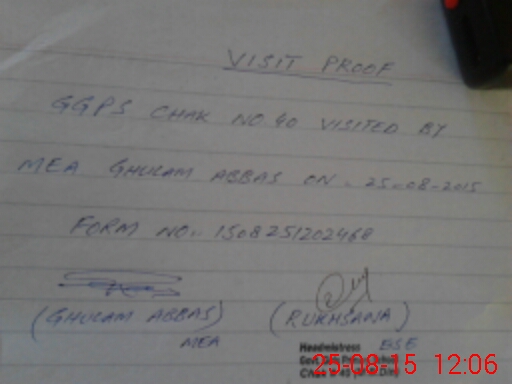 VISIT PROOF
GGPS CHAK NO 40 VISITED BY
MEA GHULAM ABBAS ON. 25-08-2015
FORM NO. 1508251202468
(GHULAM ABBAS) (RUKHSANA)
MEA
Headmistress BSE
25-08-15 12:06